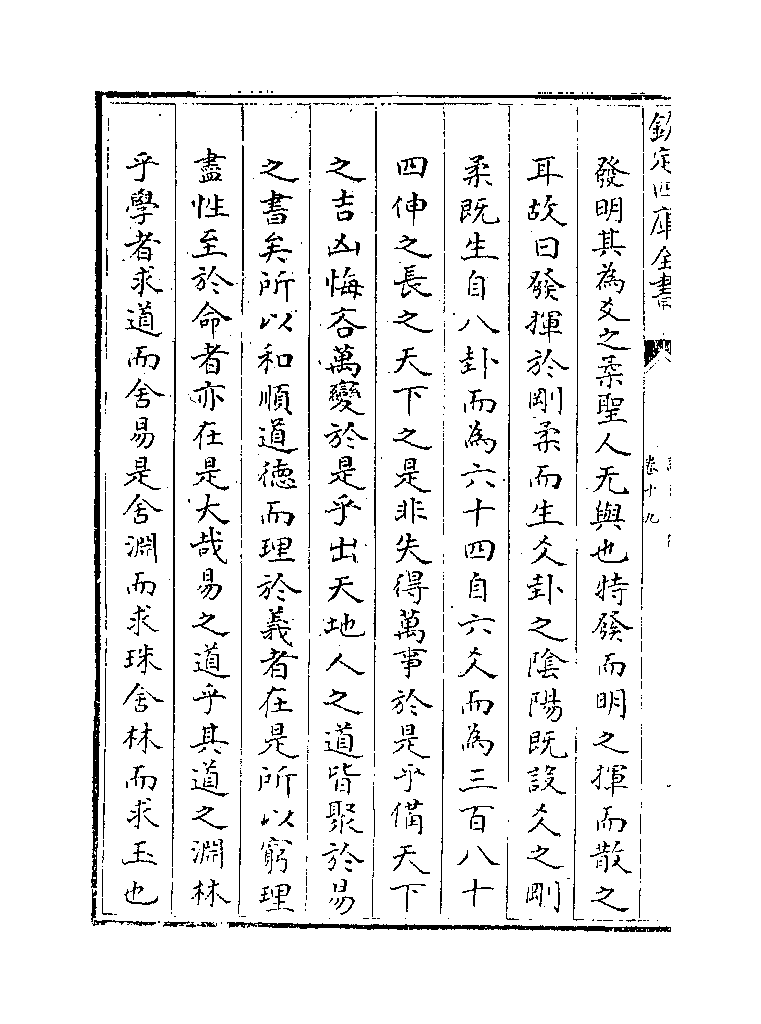 欽定四庫全書
卷十九
發明其為爻之柔聖人无與也特發而明之揮而散之
耳故曰發揮於剛柔而生爻卦之陰陽既設爻之剛
柔既生自八卦而為六十四自六爻而為三百八十
四伸之長之天下之是非失得萬事於是乎備天下
之吉凶悔吝萬變於是乎出天地人之道皆聚於易
之書矣所以和順道德而理於義者在是所以窮理
盡性至於命者亦在是大哉易之道乎其道之淵林
乎學者求道而舍易是舍淵而求珠舍林而求玉也